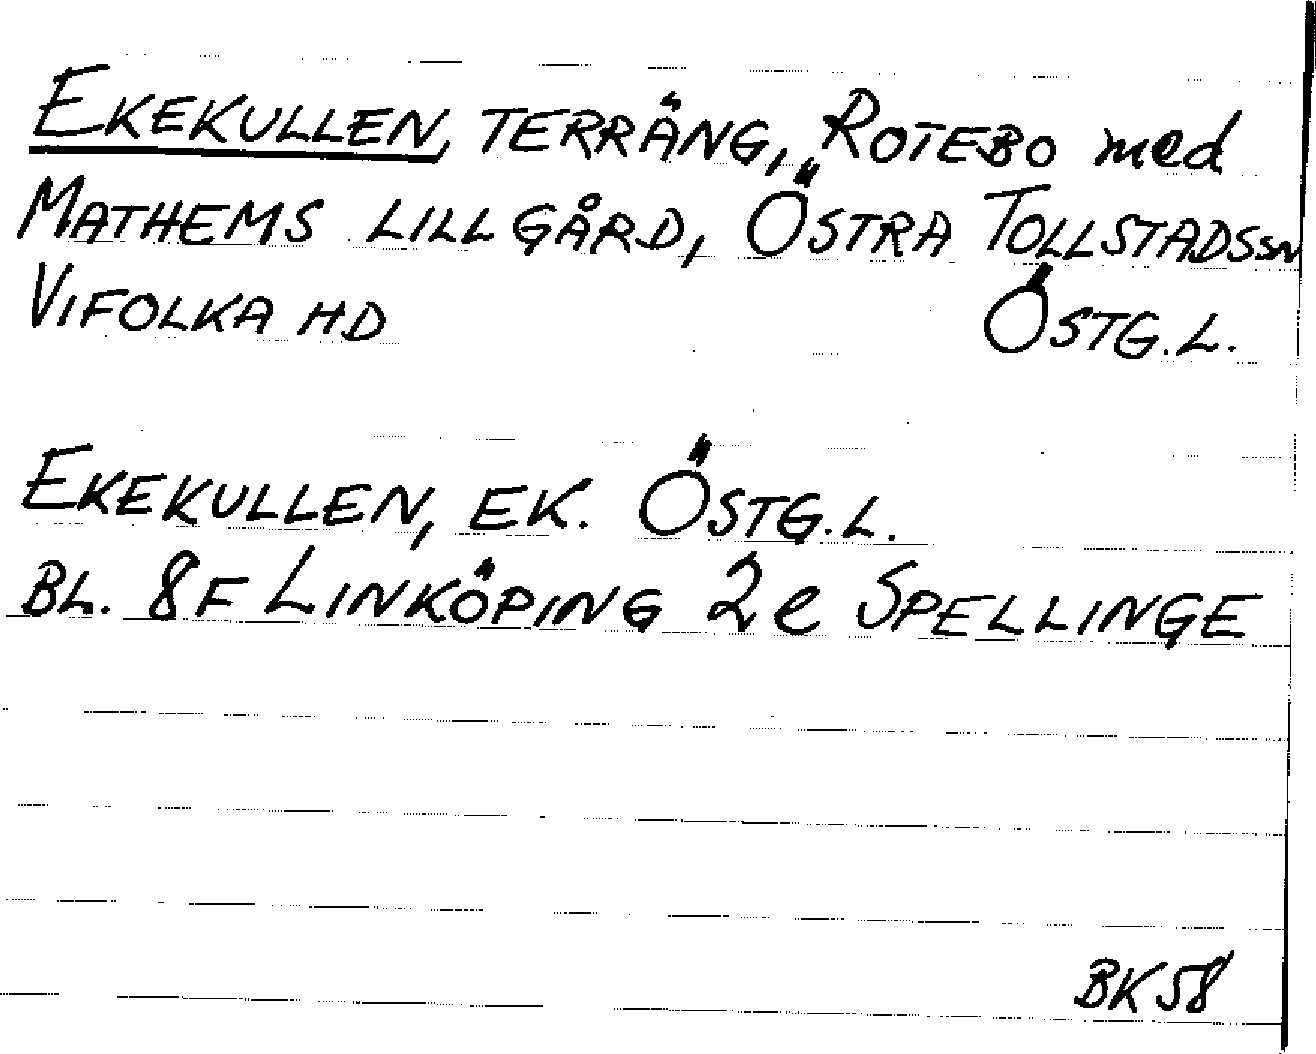 EKEKULLEN, TERRÄNG, ROTEBO med
MATHEMS LILLGÅRD, ÖSTRA TOLLSTADSSN
VIFOLKA HD ÖSTG.L.
EKEKULLEN, EK. ÖSTG.L.
BL. 8F LINKÖPING 2e SPELLINGE
BK58